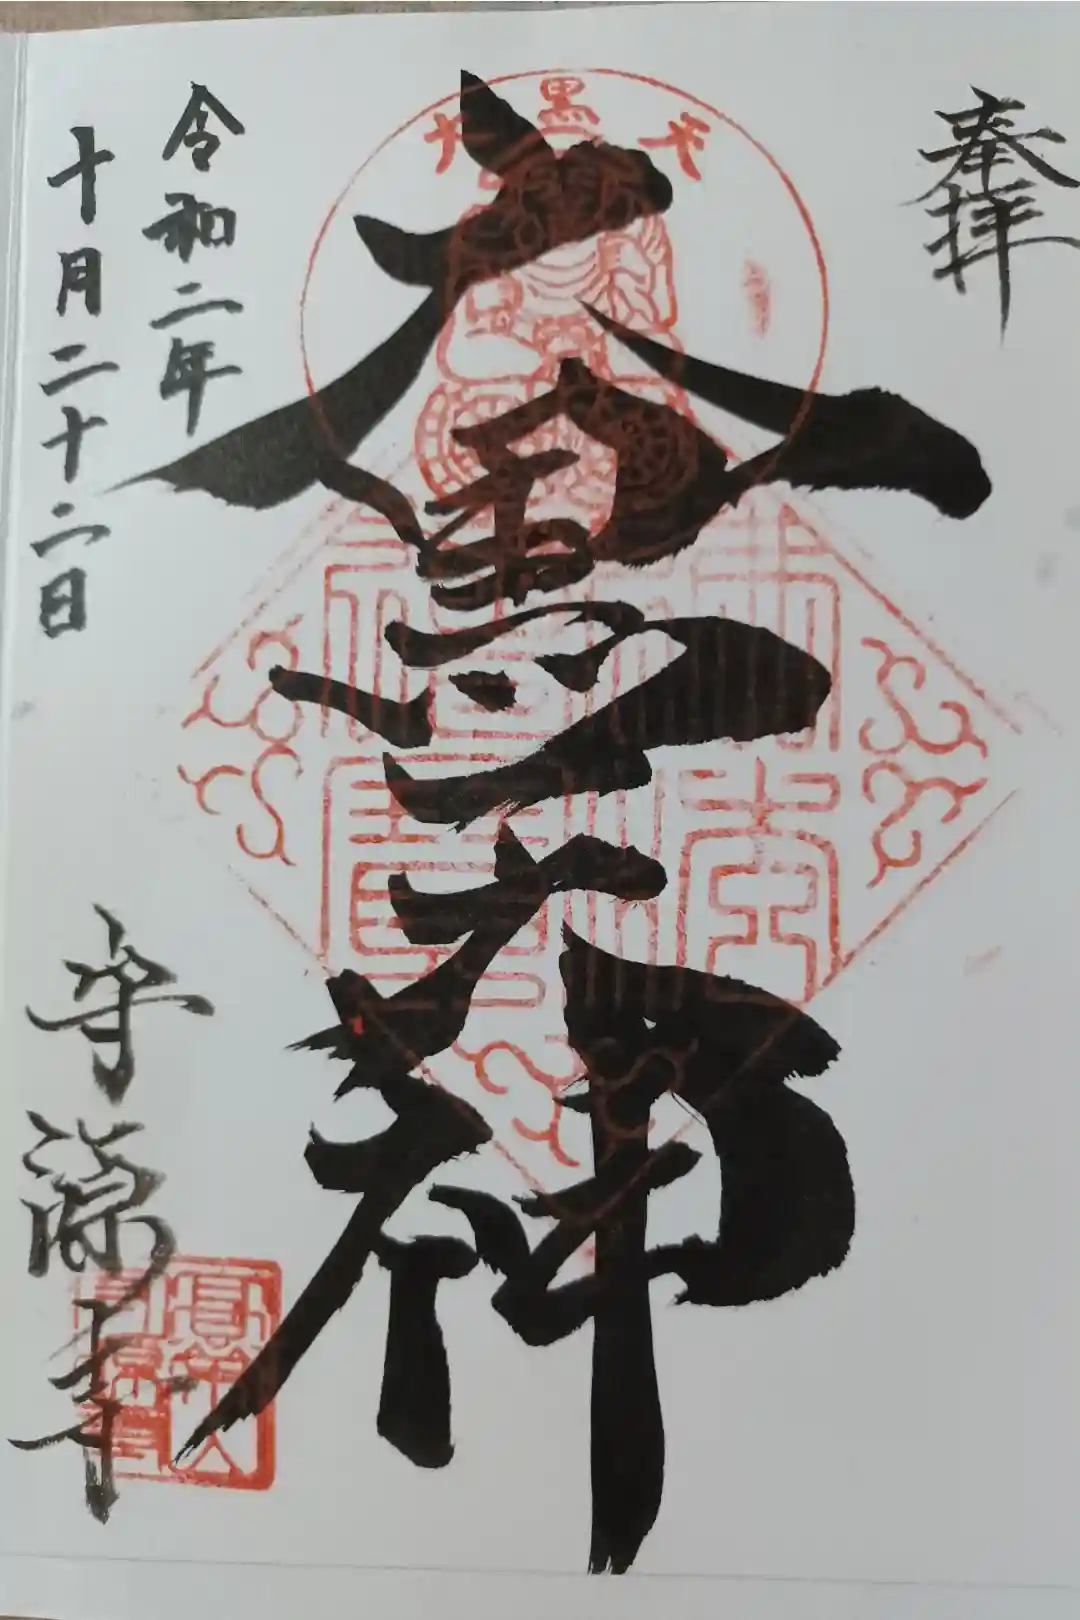 奉拝
大黒天
大黒天神
令和二年
十月二十二日
守源寺